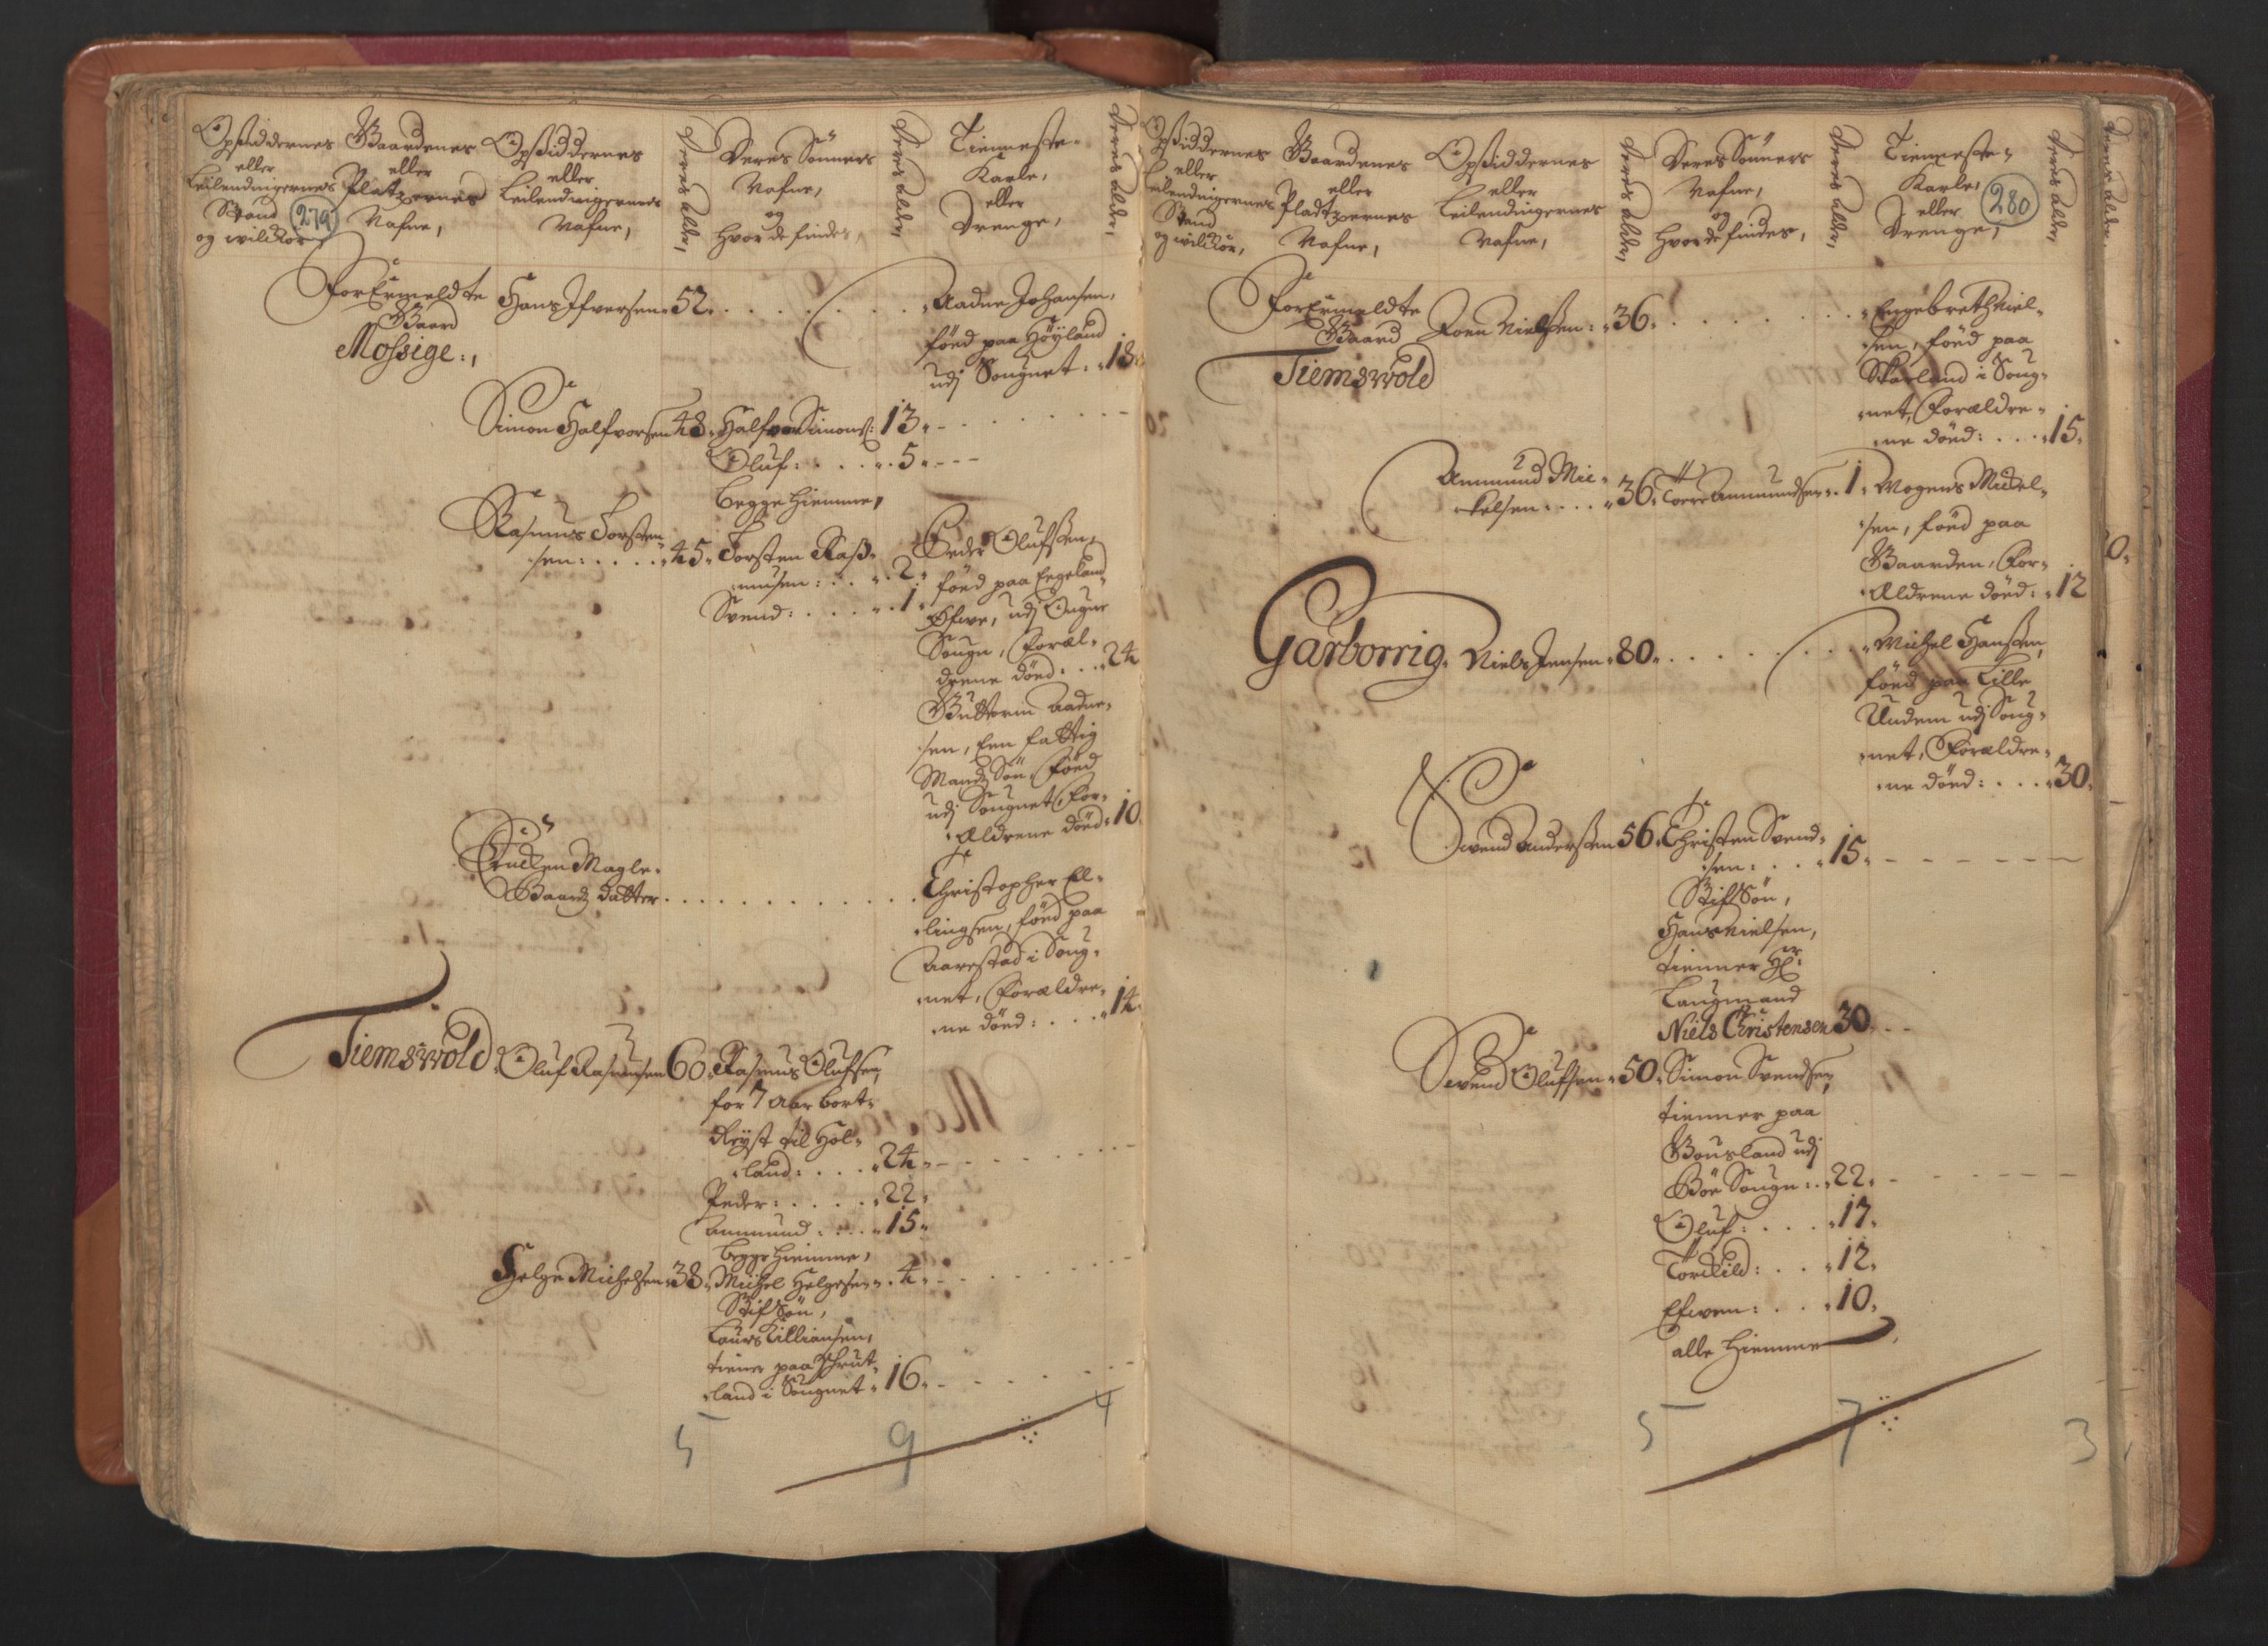 Opsiddernes
eller
Leilendingernes
Stand
og wilckor,
279
Gaardenes
eller
Platzernes
Nafne,
Opsiddernes
eller
Leilendingernes
Nafne,
Deres alder,
Deres Sönners
Nafne,
og
hvor de findes,
Deres alder,
Tienneste-
Karle,
eller
Drenge,
Deres alder,
Forermeldte
Gaard
Mossige.,
Hans Ifversen 52.
Aadne Johansen,
föed paa Höyland
udj Sougnet. 18.
Simon Halfvorsen 48. Halfvor Simons: 13.
Oluf: . . . 5.
begge hiemme,
Rasmus Torsten-
sen: . . . . 45.
Torsten Raß-
musen: . . . 2.
Svend: . . . . 1.
Peder Olufsen,
föed paa Eegeland
Øfwe, udj Ougne
Sougn, Foræl-
drene döed: . . 24
Gutterm Aadne-
sen, Een fattig
Mandz Sön, föed
udj Sougnet For-
Ældrene döed. 10.
Truelsen Magle-
Gaardz datter
Christopher El-
lingsen, föed paa
Aarestad i Soug-
net, Forældre-
ne döed: . . . 14.
Tiemswold. Oluf Rasmusen 60. Rasmus Olufsen,
for 7 Aar bort-
Reyst til Hol-
land: . . . 24.
Peder: . . . . 22.
Ammund: . . . 15.
begge hiemme,
Helge Michelsen 38. Michel Helgesen . 4.
Stif Sön,
Laurs Tilliansen,
tiener paa Schrut-
land i Sougnet. 16.
5 9 4
Opsiddernes
eller
Leilendingernes
Stand
og wilckor,
Gaardenes
eller
Pladtzernes
Nafne,
Opsiddernes
eller
Leilendingernes
Nafne,
Deres alder,
Deres Sönners
Nafne,
og
hvor de findes,
Deres alder,
Tienneste-
Karle,
eller
Drenge,
280
Deres alder,
Deres alder.
Forermeldte
Gaard
Tiemswold
Joen Nielsen: 36.
Engebreth Niel-
sen, föed paa
Skarland i Soug-
net, Forældre-
ne döed: . . . 15.
Ammund Mic-
kelsen . . . . 36. Torre Ammundsen . 1.
Mogens Mickel-
sen, föed paa
Gaarden, For-
Ældrene döed: 12
Garborrig. Niels Jensen 80.
Michel Hansen,
föed paa Lille
Undem udj Soug-
net, Forældre-
ne döed: . . . 30.
Swend Andersen 56. Christen Svend-
sen: . . . 15.
Stif Sön,
Hans Nielsen,
tienner Hr.
Laugmand
Niels Christensen 30.
Swend Olufsen 50. Simon Svendsen,
tienner paa
Bousland udj
Böe Sougn: 22.
Oluf: . . . . 17.
Torkild: . . . 12.
Efwen: . . . 10.
alle hiemme
5 7 3